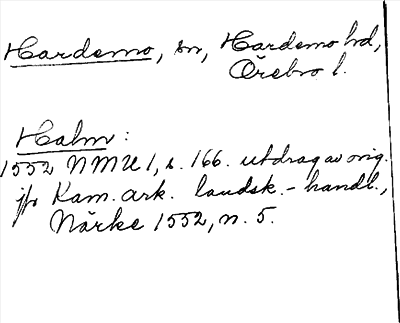 Hardemo, sn, Hardemo hd,
Örebro l.
Halm:
1552 NMU 1, s. 166. utdrag av orig.
jfr Kam. ark. landsk.-handl.,
Närke 1552, n. 5.